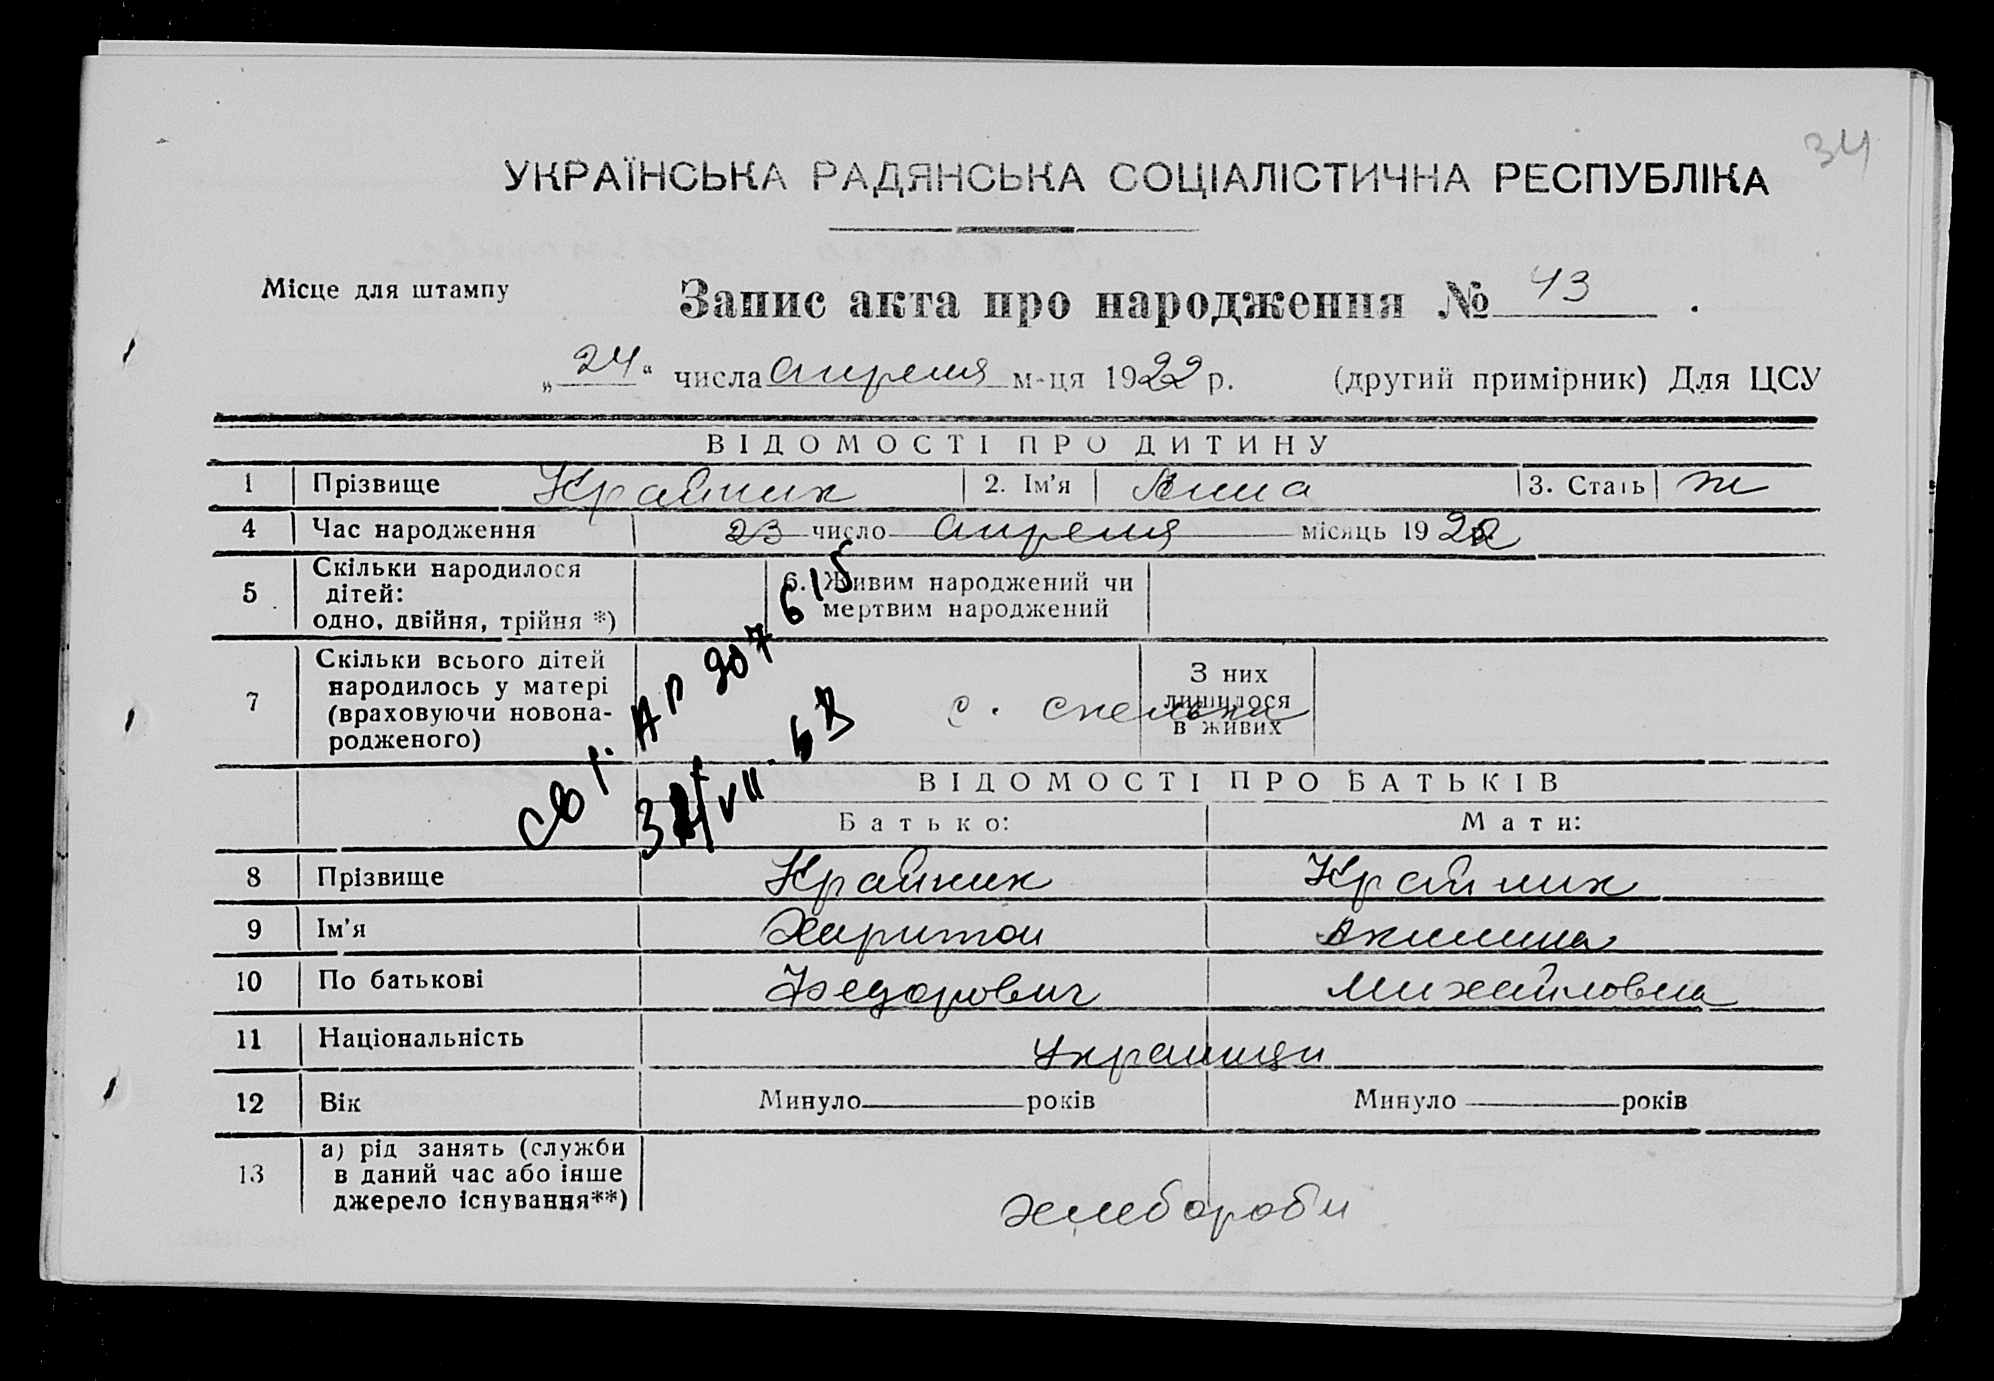 34
УКРАЇНСЬКА РАДЯНСЬКА СОЦІАЛІСТИЧНА РЕСПУБЛІКА
Місце для штампу
Запис акта про народження № 43.
„24“ числа апреля м-ця 1922 р. (другий примірник) Для ЦСУ
ВІДОМОСТІ ПРО ДИТИНУ
1 Прізвище Крайник 2. Ім'я Анна 3. Стать ж
4 Час народження 23 число апреля місяць 1922
5 Скільки народилося дітей: одно, двійня, трійня *) 6. Живим народжений чи мертвим народжений
7 Скільки всього дітей народилось у матері (враховуючи новонародженого) с. Скельки З них лишилося в живих
Св І. АП 907615
VII. 63
ВІДОМОСТІ ПРО БАТЬКІВ
Батько: Мати:
8 Прізвище Крайник Крайник
9 Ім'я Харитон Акилина
10 По батькові Федорович Михайловна
11 Національність Украинци
12 Вік Минуло років Минуло років
13 а) рід занять (служби в даний час або інше джерело існування**) хлебороби